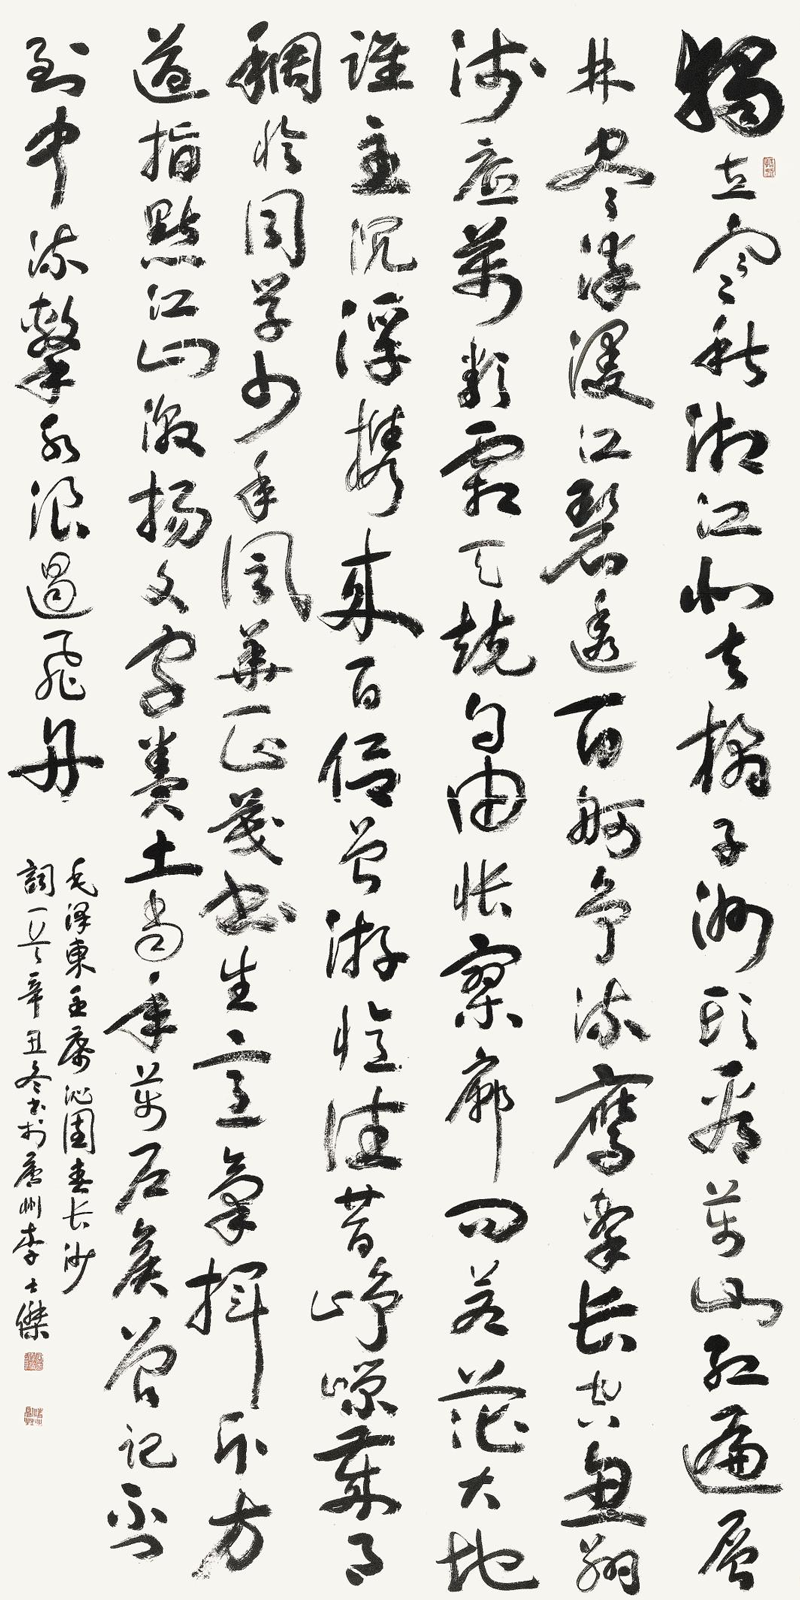 獨立寒秋湘江北去橘子洲頭看萬山紅遍層
林尽染漫江碧透百舸争流鷹擊長空魚翔
浅底萬類霜天競自由悵寥廓問蒼茫大地
誰主沉浮携來百侶曾游憶往昔崢嶸歲月
稠恰同學少年風華正茂書生意氣揮斥方
遒指點江山激揚文字糞土當年萬户侯曾記否
到中流擊水浪遏飛舟
毛澤東主席沁園春長沙
詞一首辛丑冬书於廬州李士傑